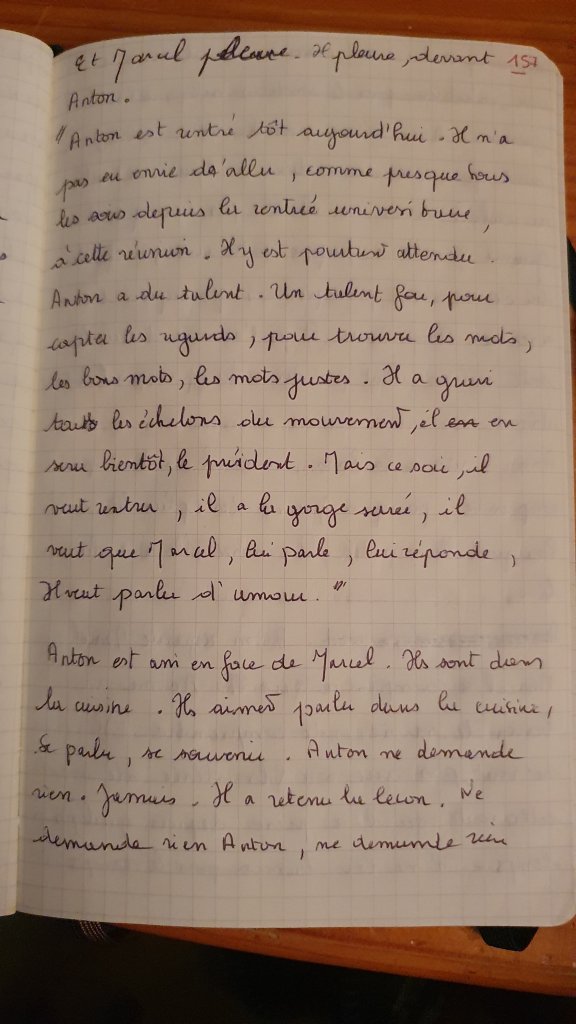 Et Marcel pleure. Il pleure, devant 157
Anton.
"Anton est rentré tôt aujourd'hui. Il n'a
pas eu envie d'aller, comme presque tous
les soirs depuis la rentrée universitaire,
à cette réunion. Il y est pourtant attendu.
Anton a du talent. Un talent fou, pour
capter les regards, pour trouver les mots,
les bons mots, les mots justes. Il a gravi
tous les échelons du mouvement, il en
sera bientôt, le président. Mais ce soir, il
veut rentrer, il a la gorge serrée, il
veut que Marcel, lui parle, lui réponde,
Il veut parler d'amour."
Anton est ami en face de Marcel. Ils sont dans
la cuisine. Ils aiment parler dans la cuisine,
Se parler, se souvenir. Anton ne demande
rien. Jamais. Il a retenu la leçon. Ne
demande rien Anton, ne demande rien